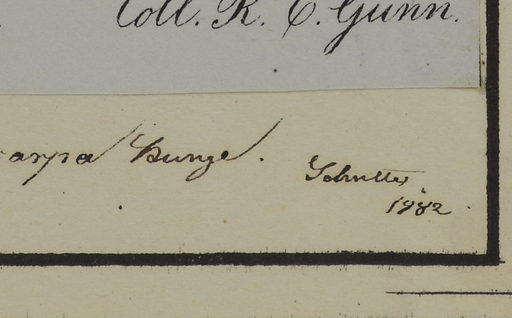 Coll. R. C. Gunn.
arpa Bunge.
Schultes
1982